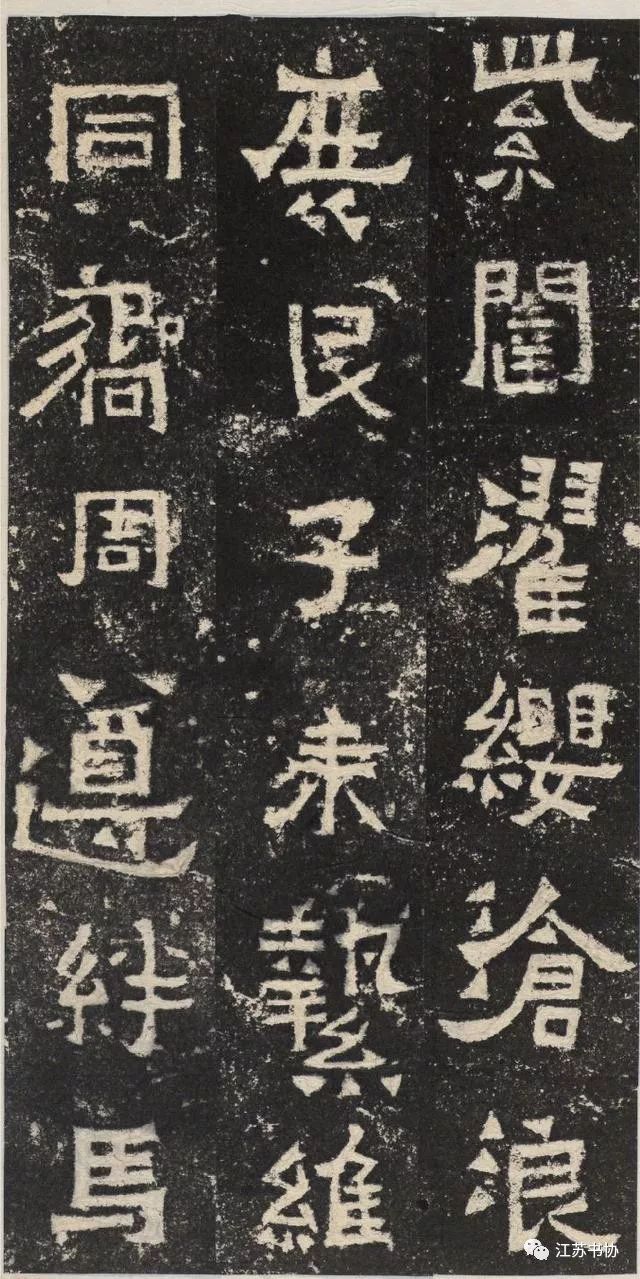 紫闥濯纓滄浪
庶民子来縶維
同嚮周遵絆馬
江苏书协